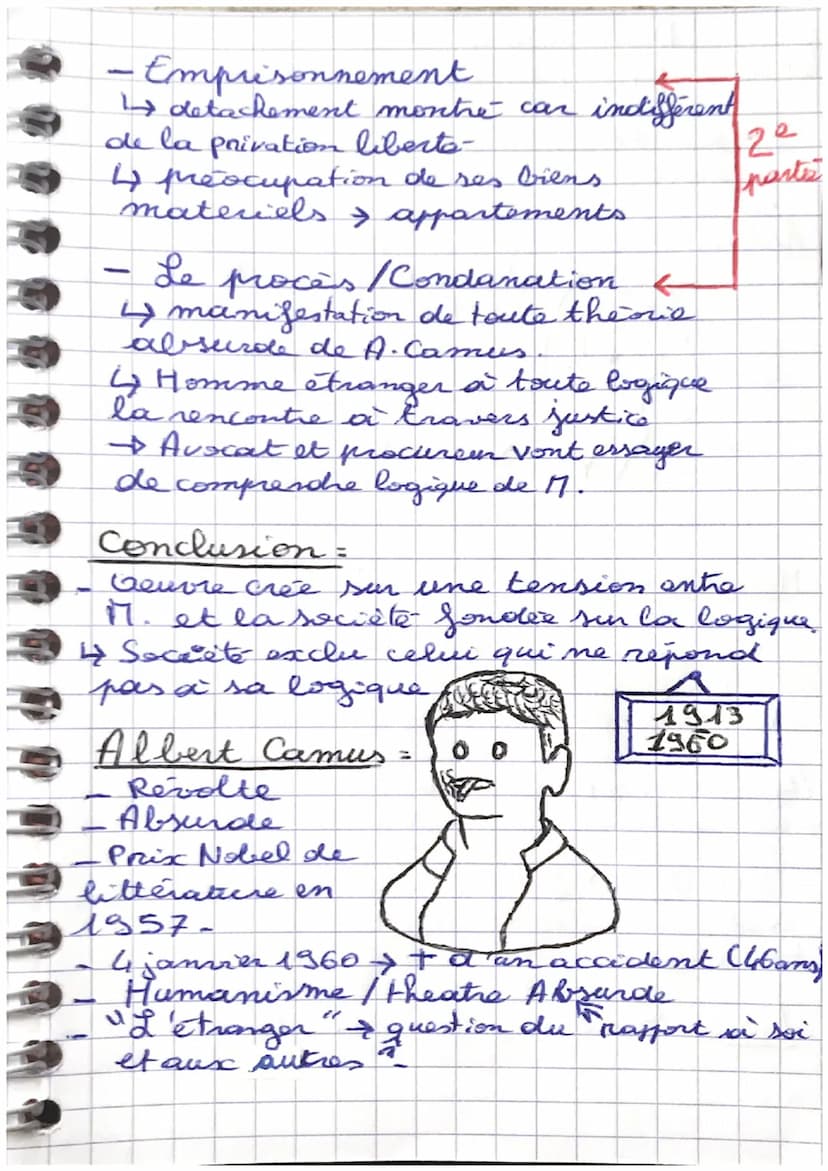 - Emprisonnement
↳ detachement montré car indifférent
de la privation liberte-
↳ préocupation de ses biens
materiels → appartements
2e
partie
- Le procès / Condanation
↳ manifestation de toute théorie
absurde de A. Camus.
↳ Homme étranger à toute logique
la rencontre à travers justice
→ Avocat et procureur vont essayer
de comprendre logique de M.
Conclusion =
- Oeuvre crée sur une tension entre
M. et la société fondée sur la logique
↳ Société exclu celui qui ne répond
pas à sa logique
1913
1960
Albert Camus =
- Révolte
- Absurde
- Prix Nobel de
littérature en
1957-
- 4 janvier 1960 → + d'un accident (46 ans)
- Humanisme / theatre Absurde
- "L'étranger" → question du rapport à soi
et aux autres ?